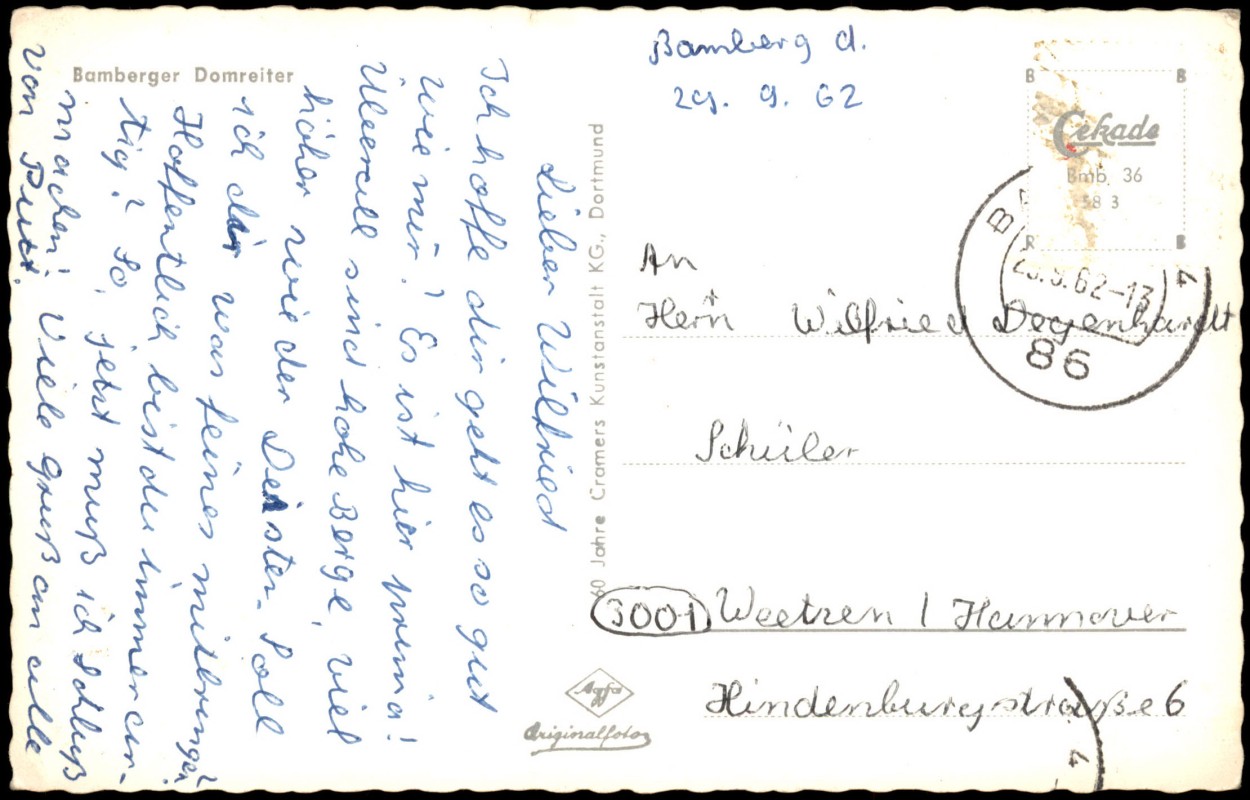 Bamberger Domreiter
Bamberg d.
29. 9. 62
Lieber Wilfried
Ich hoffe dir geht es so gut
wie mir? Es ist hier prima!
Überall sind hohe Berge, viel
höher wie der Deister. Soll
ich dir was feines mitbringen?
Hoffentlich bist du immer ar-
tig? So, jetzt muß ich Schluß
machen! Viele Gruß an alle
von Putt.
60 Jahre Cramers Kunstanstalt KG., Dortmund
B B
Cekade
Bmb. 36
58 3
B
62-13
4
86
An
Herrn Wilfried Degenhardt
Schüler
3001 Weetzen / Hannover
Hindenburgstraße 6
Agfa
Originalfoto
4